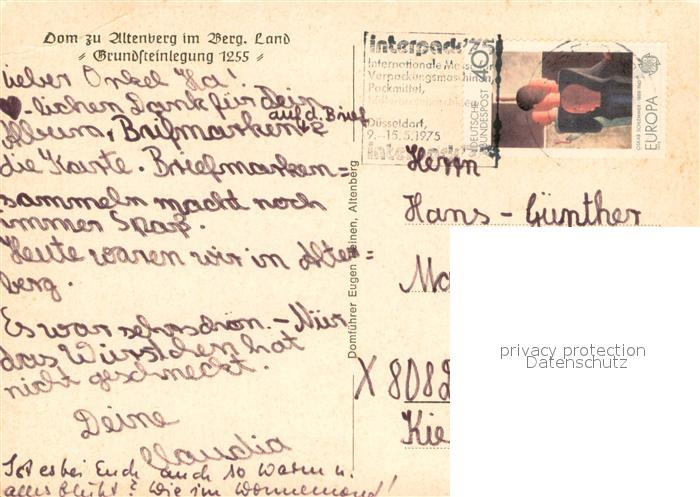 Dom zu Altenberg im Berg. Land
Grundsteinlegung 1255
Lieber Onkel Ha!
♥-lichen Dank für Dein
Album, Briefmarken auf d. Brief
die Karte. Briefmarken=
sammeln macht noch
immer Spaß.
Heute waren wir in Alten=
berg.
Es war sehr schön. – Nur
das Würstchen hat
nicht geschmeckt.
Deine
Claudia
Ist es bei Euch auch so warm u.
alles blüht? Wie im Wonnemond!
Domführer Eugen Heinen, Altenberg
interpack'75
Internationale Messe
Verpackungsmaschinen,
Packmittel,
Düsseldorf,
9.–15.5.1975
interpack
40
DEUTSCHE
BUNDESPOST
OSKAR SCHLEMMER
EUROPA
Herrn
Hans-Günther
Ma
X 808
Kie
privacy protection
Datenschutz